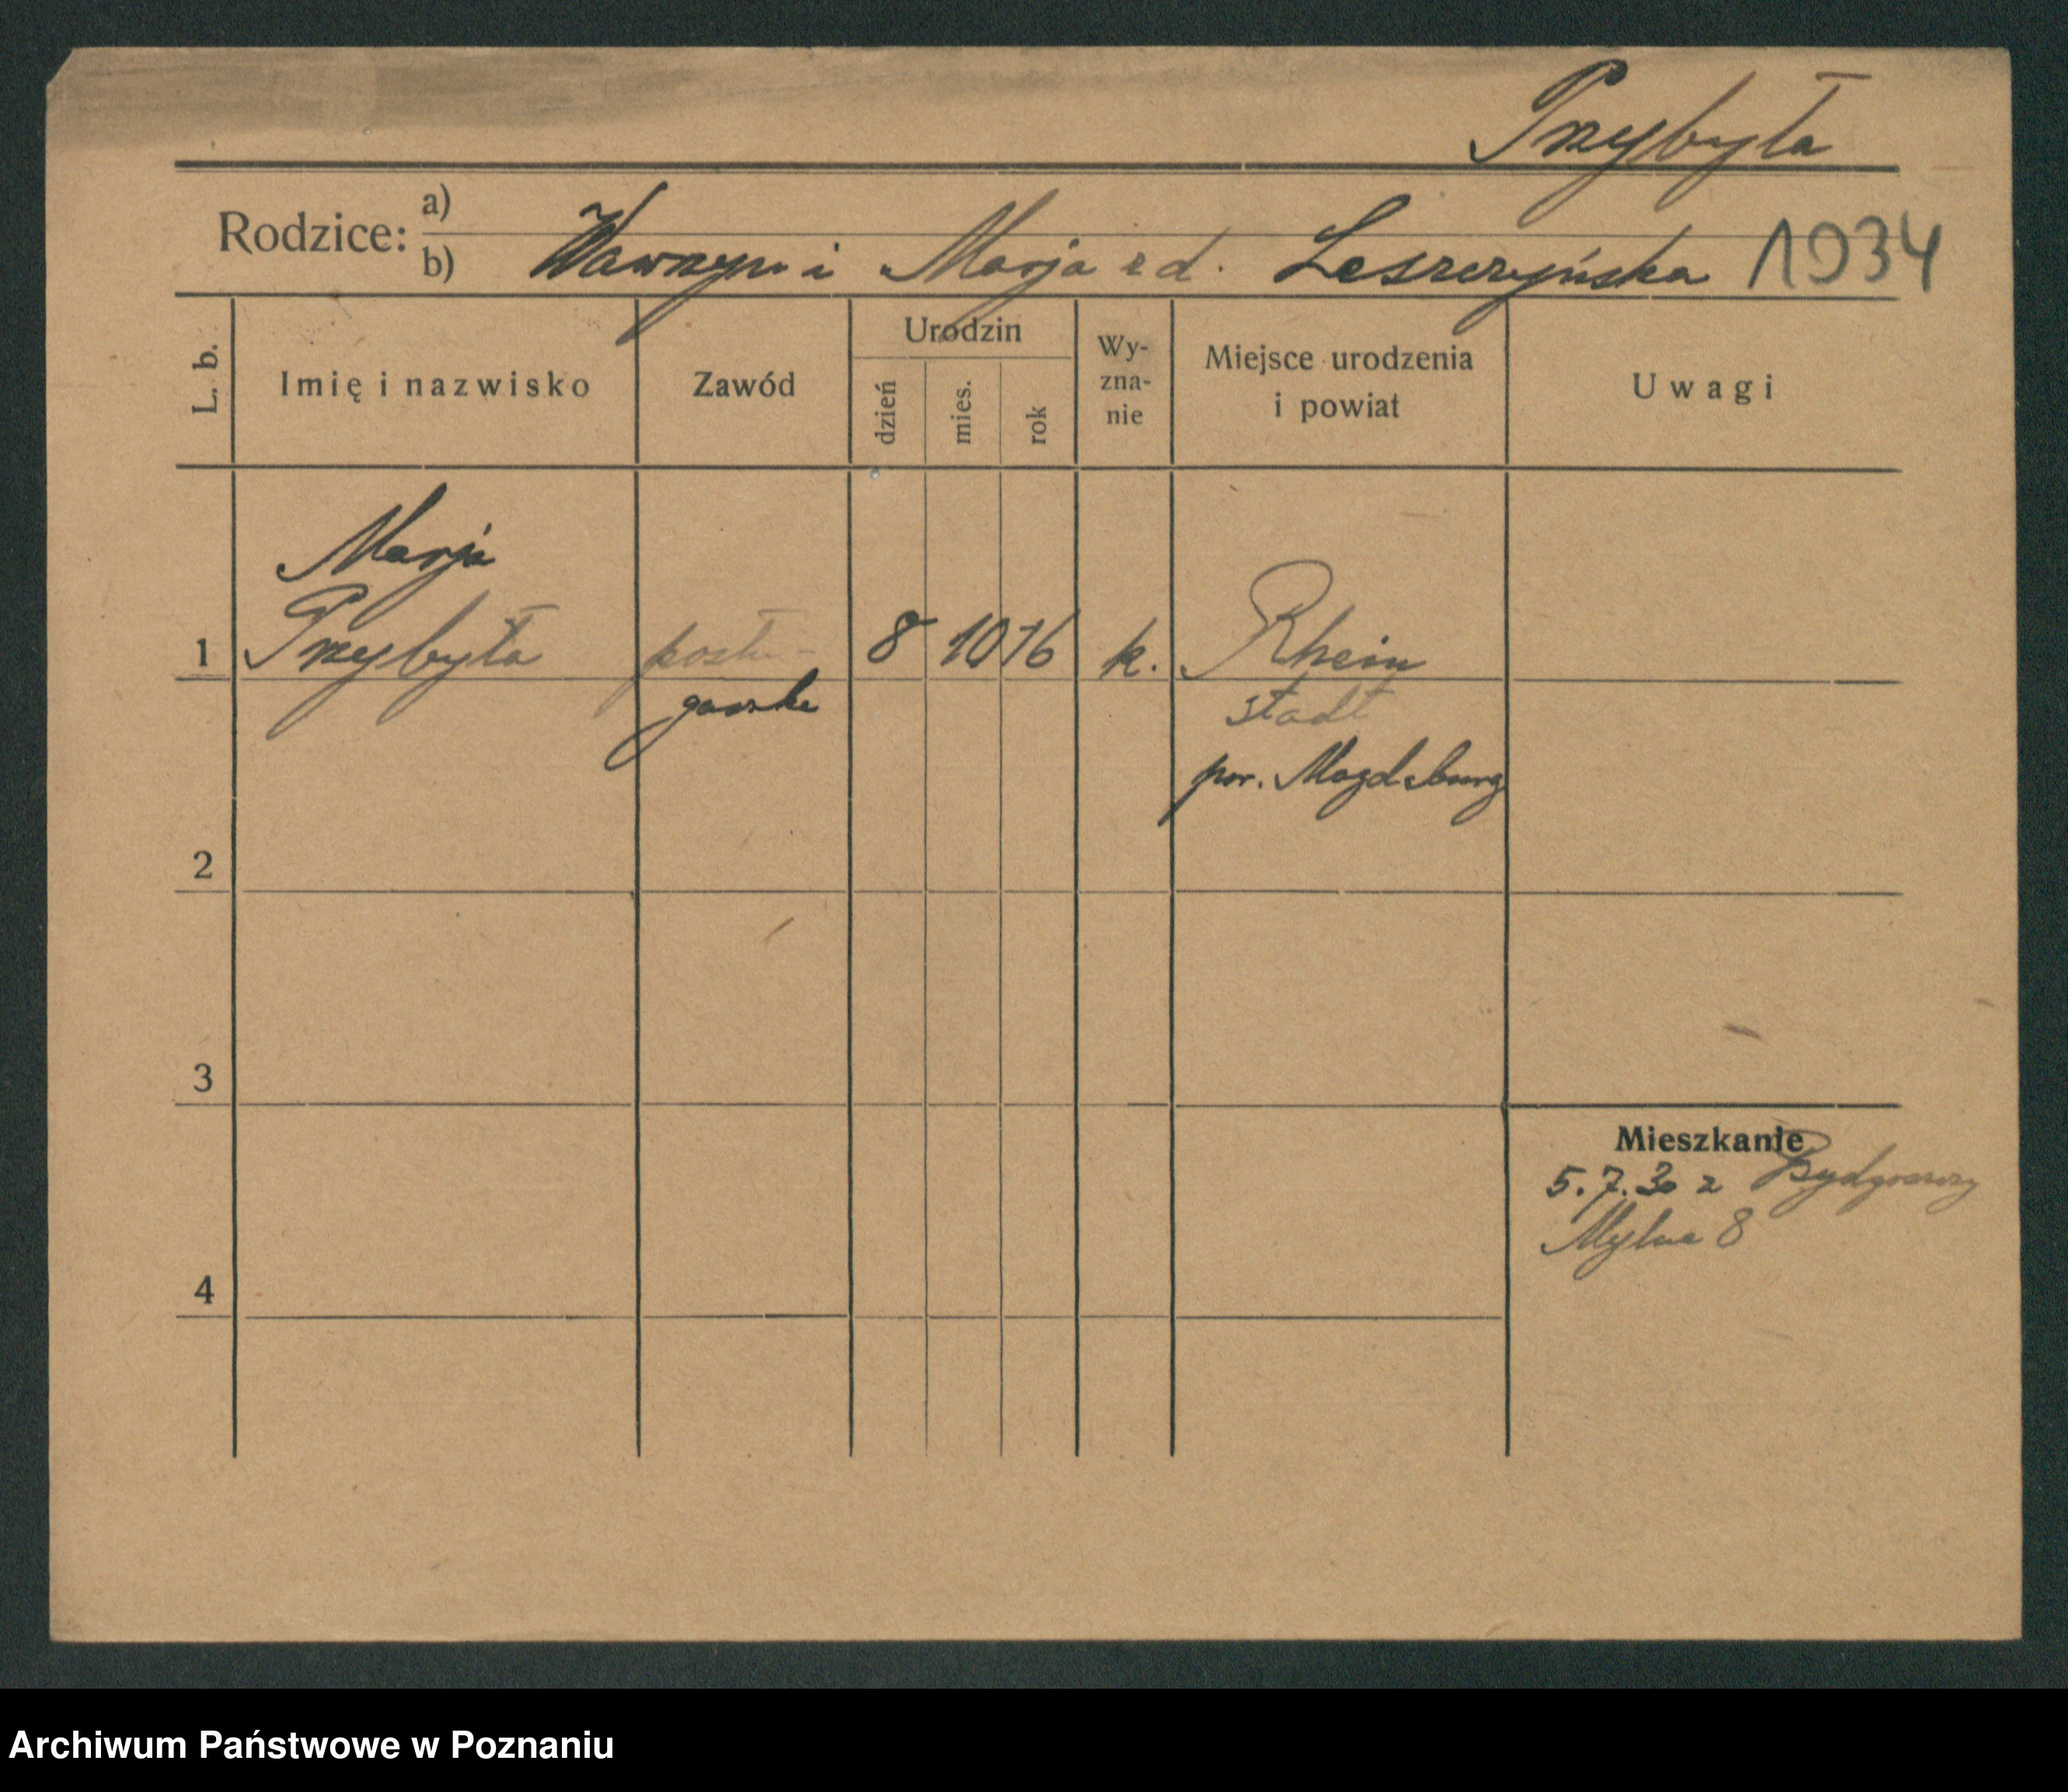 Przybyła
Rodzice: a)
b) Wawrzyn i Marja z d. Leszczyńska 1934
L. b. Imię i nazwisko Zawód Urodzin dzień mies. rok Wy-zna-nie Miejsce urodzenia i powiat Uwagi
Marja
1 Przybyła posłu- 8 10 16 k. Rhein
gaczka stadt
pow. Magdeburg
2
3
Mieszkanie
5.7.30 z Bydgoszczy
Mylna 8
4
Archiwum Państwowe w Poznaniu